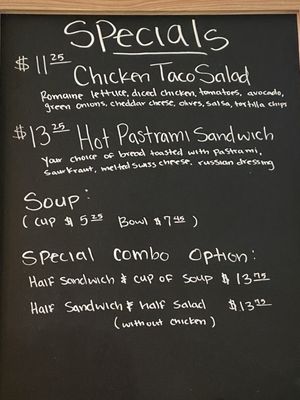 Specials
$11.25
Chicken Taco Salad
Romaine lettuce, diced chicken, tomatoes, avocado,
green onions, cheddar cheese, olives, salsa, tortilla chips
$13.25 Hot Pastrami Sandwich
Your choice of bread toasted with Pastrami,
Saurkraut, melted swiss cheese, russian dressing
Soup:
(Cup $5.25 Bowl $7.45)
Special Combo Option:
Half Sandwich & cup of soup $13.75
Half Sandwich & Half Salad $13.75
(without chicken)